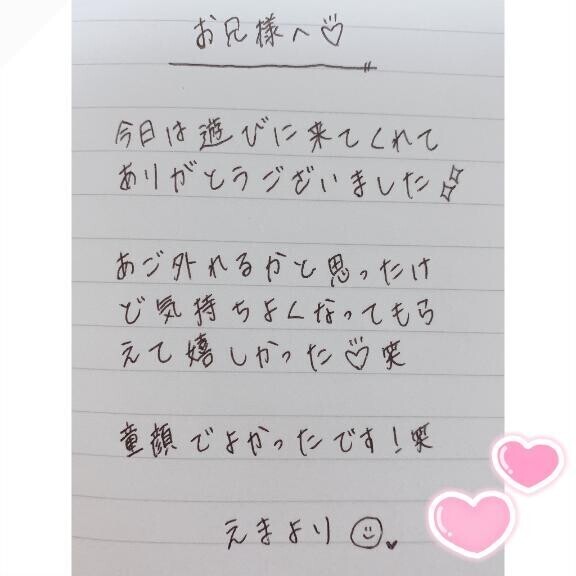 お兄様へ♡
今日は遊びに来てくれて
ありがとうございました
あご外れるかと思ったけ
ど気持ちよくなってもら
えて嬉しかった♡笑
童顔でよかったです!笑
えまより